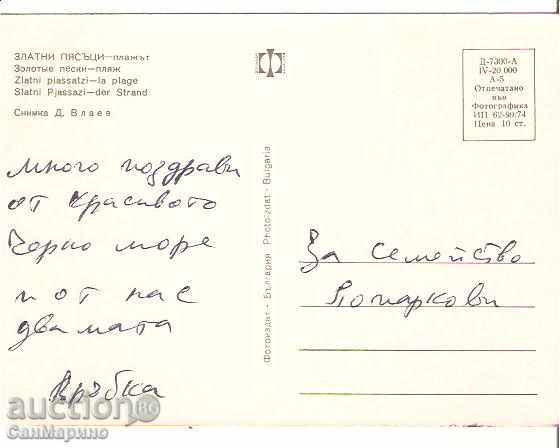 ЗЛАТНИ ПЯСЪЦИ—плажът
Золотые пески—пляж
Zlatni piassatzi—la plage
Slatni Pjassazi—der Strand
Снимка Д. Влаев
Д-7300-А
IV-20 000
А-5
Отпечатано
във
Фотографика
ИП 62-90/74
Цена 10 ст.
Фотоиздат - България Photoizdat - Bulgaria
много поздрави
от красивото
Черно море
и от нас
двамата
Връбка
За семейство
Попаркови
auction BG
СанМарино